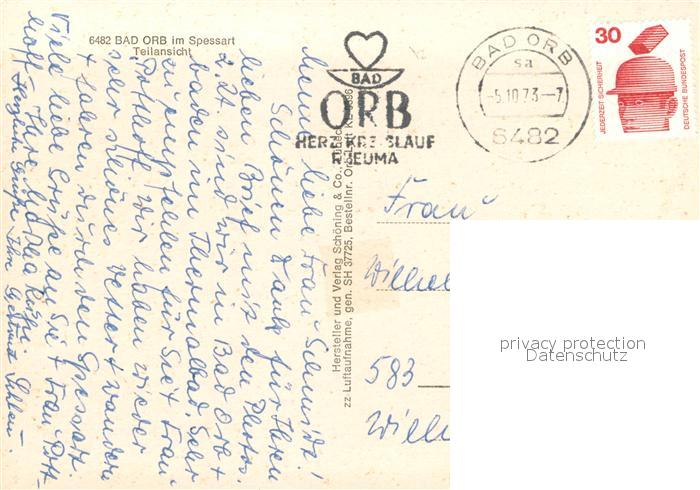 6482 BAD ORB im Spessart
Teilansicht
BAD
ORB
HERZ KREISLAUF
RHEUMA
BAD ORB
sa
-5.10.73.--7
6482
30
JEDERZEIT SICHERHEIT
DEUTSCHE BUNDESPOST
Meine liebe Frau Schmidt!
Schönen Dank für Ihren
lieben Brief mit den Photos.
z. Zt. sind wir in Bad Orb +
baden im Thermalbad. Sehr
zu empfehlen für Sie + Frau
Potthoff. Wir haben wieder
sehr schönes Wetter + wandern
+ laufen durch den Spessart.
Viele liebe Grüße an Sie + Frau Pott-
hoff Ihre
Herzliche Grüße Ihre Gertrud
Hersteller und Verlag Schöning & Co., Lübeck
zz Luftaufnahme, gen. SH 37725, Bestellnr. Orb
Frau
Wilhel
583
Wille
privacy protection
Datenschutz